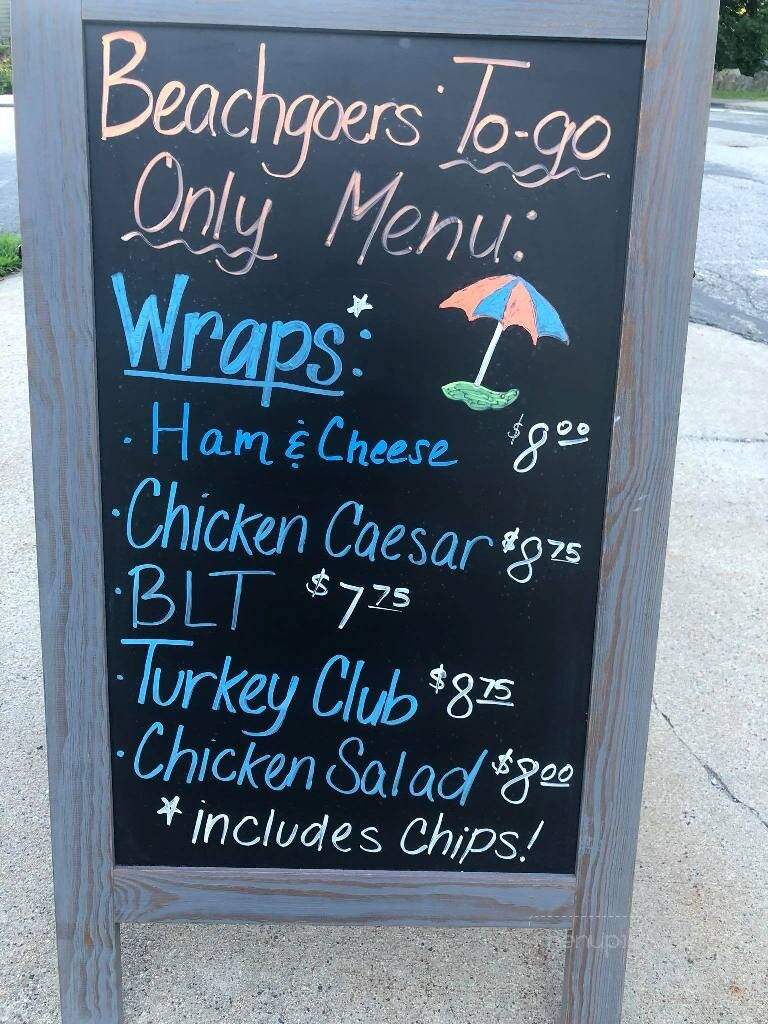 Beachgoers' To-go
Only Menu:
Wraps*:
· Ham & Cheese $8.00
· Chicken Caesar $8.75
· BLT $7.75
· Turkey Club $8.75
· Chicken Salad $8.00
* includes Chips!